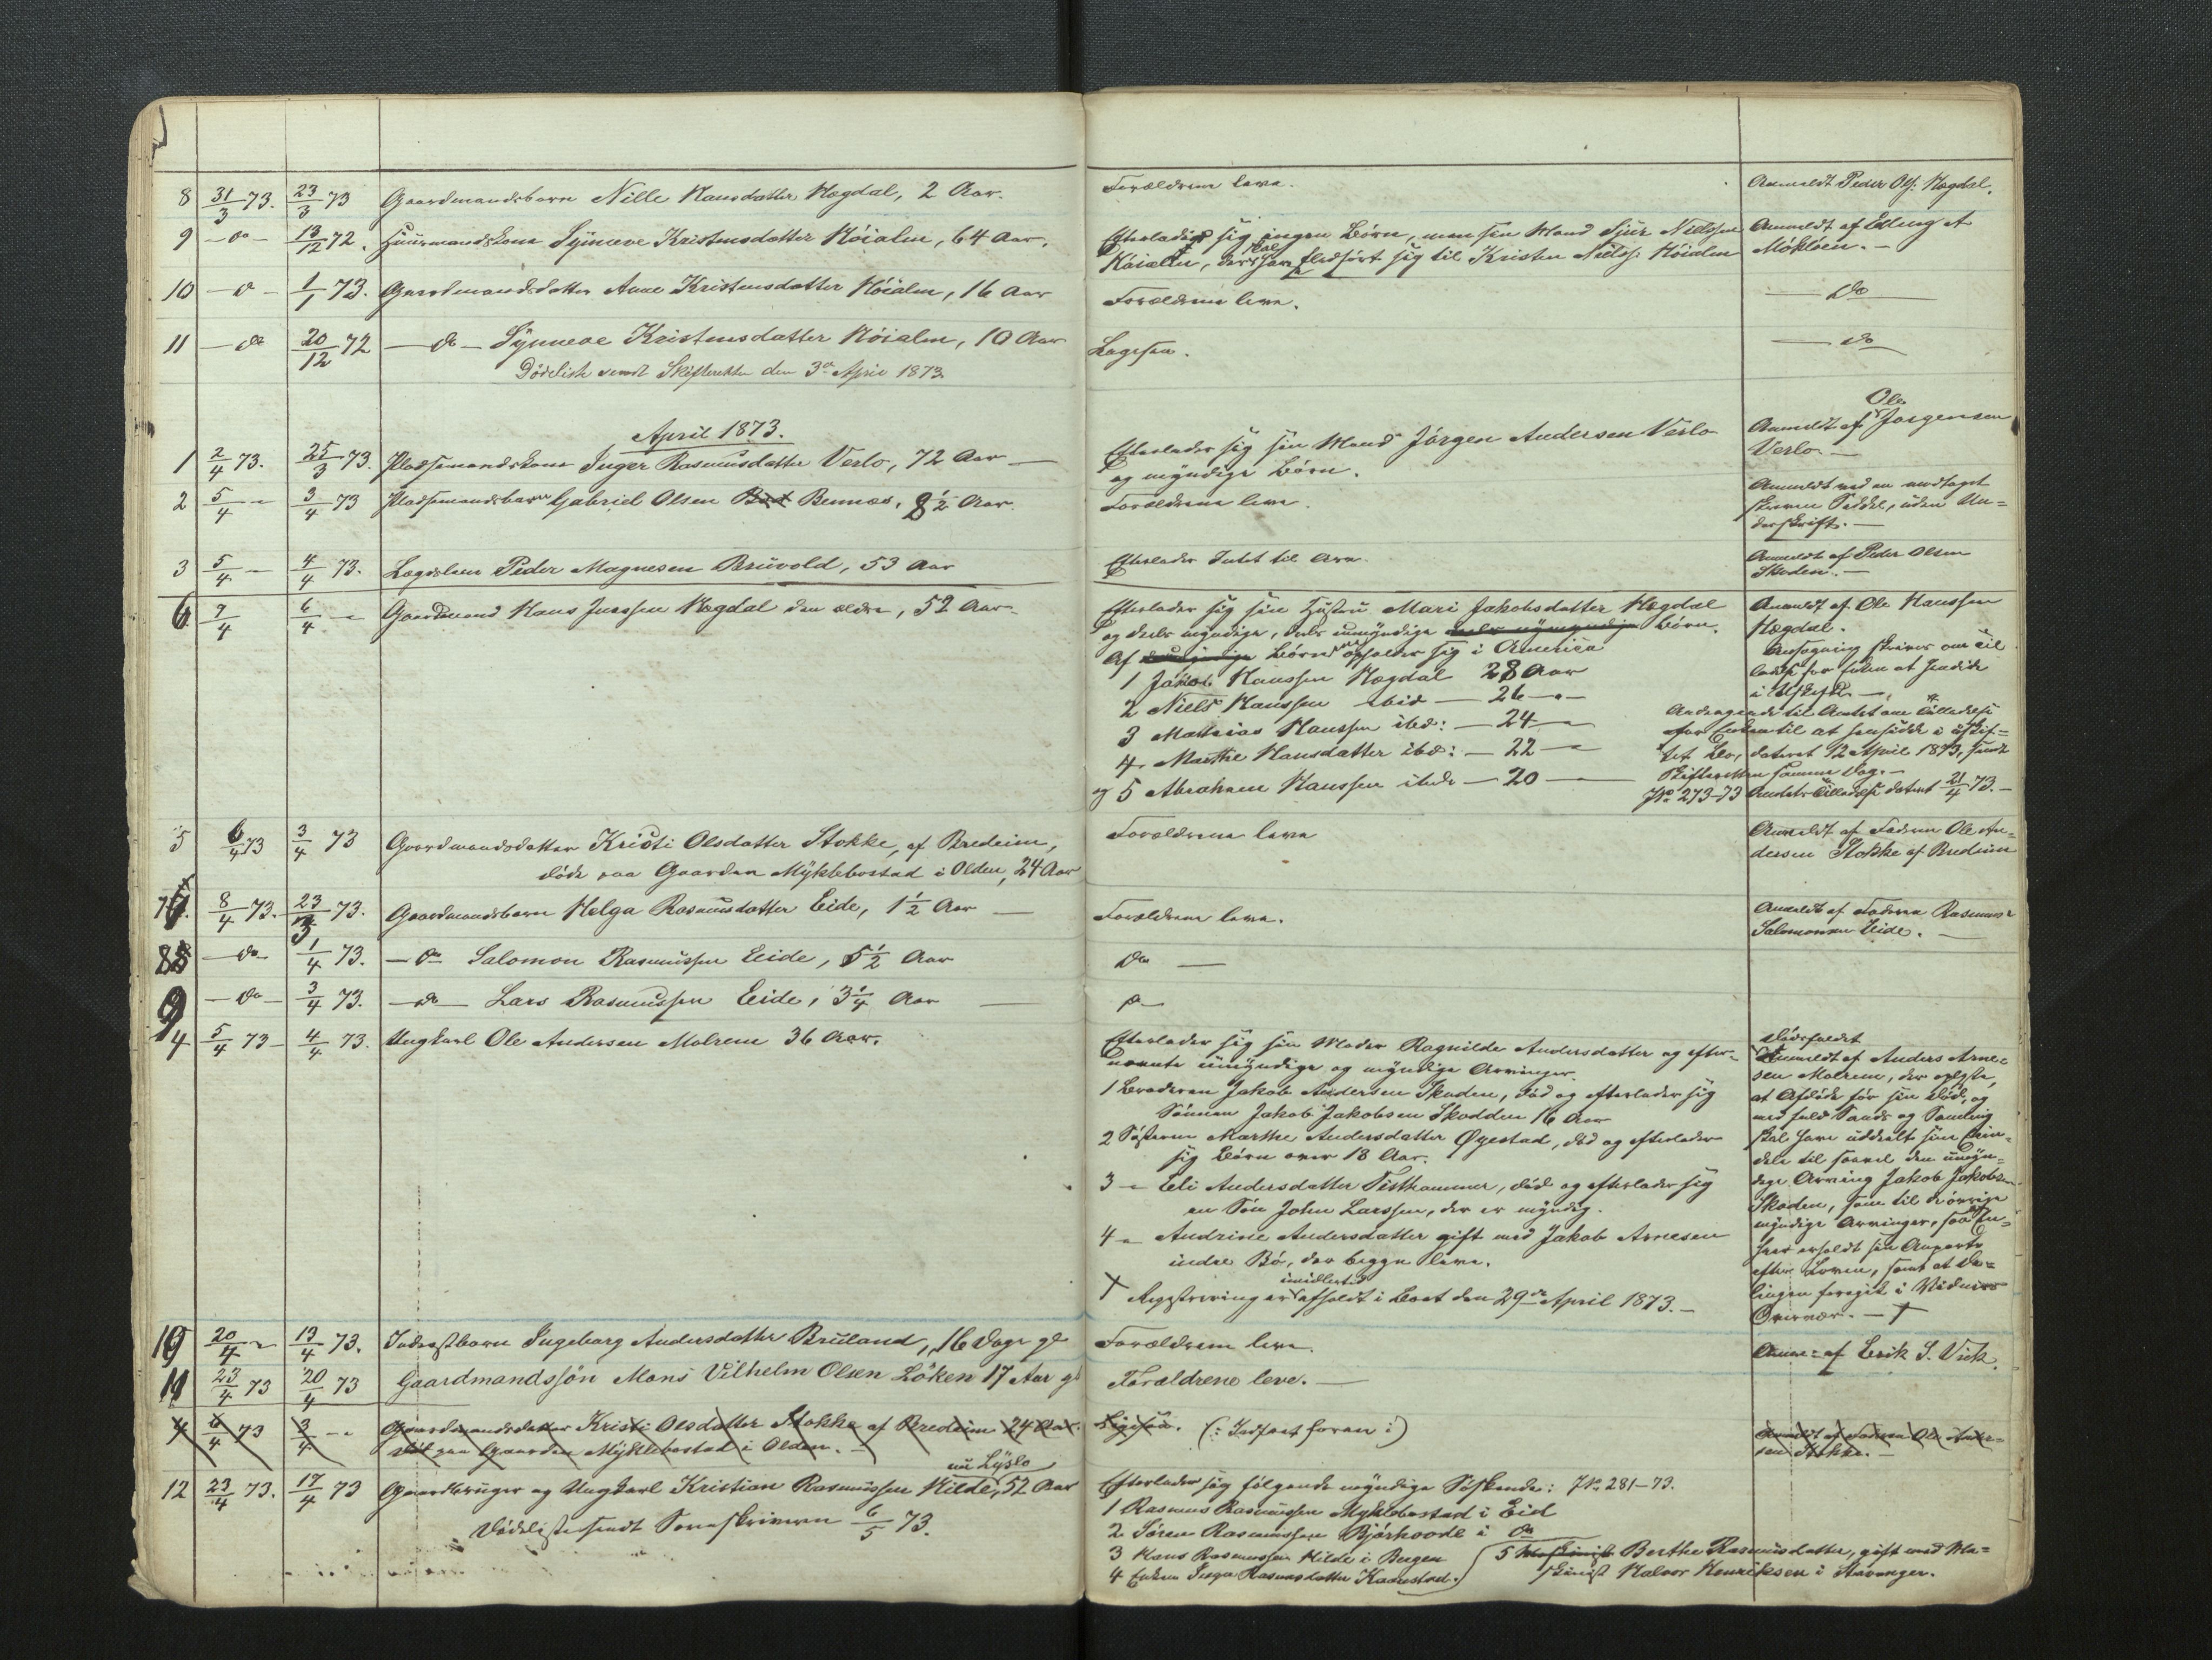 8 31/3 73. 23/3 73 Gaardmandsbarn Nille Hansdatter Hægdal, 2 Aar. Forældrene leve. Anmeldt Peder Ols: Hægdal.
9 -do- 13/12 72. Huusmandskone Synneve Kristensdatter Höialm, 64 Aar. Efterladt sig ingen Börn, men sin Mand Sjur Nielssen Anmeldt af Elling A
Höialm, der skal have fledfört sig til Kristen Nielss: Höialm Möklöen. -
10 -d- 1/1 73. Gaardmandsdatter Anne Kristensdatter Höialm, 16 Aar Forældrene leve. do
11 -do 20/12 72 -do- Synneve Kristensdatter Höialm, 10 Aar Ligesaa. do
Dödsliste sendt Skifteretten den 3die April 1873.
April 1873.
1 2/4 73. 25/3 73. Pladsemandskone Inger Rasmusdatter Verlo, 72 Aar - Efterlader sig sin Mand Jörgen Andersen Verlo Anmeldt af Ole Jorgensen
og myndige Börn. Verlo. -
2 5/4 - 3/4 73 Pladsemandsbarn Gabriel Olsen Bennæs, 8 1/2 Aar. Forældrene leve. Anmeldt ved en modtaget
skreven Seddel, uden Un=
derskrift. -
3 5/4 - 4/4 73. Lægdslem Peder Magnesen Bruvold, 53 Aar Efterlader Intet til Arv. Anmeldt af Peder Olsen
Skoden. -
6 7/4 6/4 - Gaardmand Hans Jenssen Hægdal den ældre, 52 Aar. Efterlader sig sin Hustru Mari Jakobsdatter Hægdal Anmeldt af Ole Hanssen
og deels myndige, deels umyndige Börn. Hægdal.
Af Börn opholder sig i America
1 Jakob Hanssen Hægdal 28 Aar
2 Niels Hanssen ibid - 26 -
3 Mathias Hanssen ibd: - 24 -
4. Marthe Hansdatter ibd: - 22 -
og 5 Abraham Hanssen ibd - 20 -
Ansøgning skreven om Til
ladelse for Enken at hensidde
i Uskiftet. -
Andragende til Amtet om Tilladelse
for Enken til at hensidde i uskif=
tet Bo, dateret 12 April 1873, sendt
Skifteretten samme Dag. -
No 273-73 Amtets Tilladelse dateret 21/4 73. -
5 6/4 73 3/4 73 Gaardmandsdatter Kristi Olsdatter Stokke, af Bredeim, Forældrene leve Anmeldt af Faderen Ole An=
döde paa Gaarden Myklebostad i Olden, 24 Aar dersen Stokke af Bredeim
7. 8/4 73. 23/3 73. Gaardmandsbarn Helga Rasmusdatter Eide, 1 1/2 Aar - Forældrene leve. Anmeldt af Faderen Rasmus
Salomonsen Eide. -
8 -do- 1/4 73. -do- Salomon Rasmussen Eide, 5 1/2 Aar do -
9 -do- 3/4 73. -do- Lars Rasmussen Eide, 3 1/4 Aar - d-
4 5/4 73- 4/4 73. Ungkarl Ole Andersen Molrem 36 Aar. Efterlader sig sin Moder Ragnilde Andersdatter og efter=
nævnte umyndige og myndige Arvinger.
1 Broderen Jakob Andersen Skoden, död og efterlader sig
Sönnen Jakob Jakobsen Skodden 16 Aar
2 Sösteren Marthe Andersdatter Øyestad, död og efterlader
sig Börn over 18 Aar.
3 - Eli Andersdatter Testhammer, död og efterlader sig
en Sön John Larssen, der er myndig.
4 - Andrine Andersdatter gift med Jakob Arnesen
indre Bö, der begge leve.
† Registrering er imidlertid afholdt i Boet den 29de April 1873. -
Dödsfaldet
Anmeldt af Anders Arne=
sen Molrem, der oplyste,
at Afdöde før sin Död, og
med fuld Sands og Samling
skal have uddeelt sine Ein=
dele til saavel den umyn=
dige Arving Jakob Jakobsen
Skoden, som til de övrige
myndige Arvinger, saa En=
hver erholdt sin Anpart
efter Loven, samt at De=
lingen foregik i Vidners
Overvær. - †
10 20/4 - 13/4 73. Inderstbarn Ingeborg Andersdatter Bruland, 16 Dage gl Forældrene leve. Anm: af Erik S. Vik.
11 23/4 73 20/4 73 Gaardmandssön Mons Vilhelm Olsen Löken 17 Aar gl Forældrene leve. -
4 6/4 73 3/4 - Gaardmandsdatter Kristi Olsdatter Stokke af Bredeim 24 Aar. Ligesaa. (: Indført foran :) Anmeldt af Faderen Ole Ander=
död paa Gaarden Myklebostad i Olden. - sen Stokke. -
12 23/4 73. 17/4 73 Gaardbruger og Ungkarl Kristian Rasmussen Hilde, nu Lyslo 52 Aar Efterlader sig fölgende myndige Söskende: No 281-73.
Dödsliste sendt Sorenskriveren 6/5 73.
1 Rasmus Rasmussen Myklebostad i Eid
2 Sören Rasmussen Bjórhovde i do
3 Hans Rasmussen Hilde i Bergen
4 Enken Inga Rasmusdatter Kaarstad.
5 Berthe Rasmusdatter, gift med Ma=
skinist Halvor Henriksen i Stavanger.